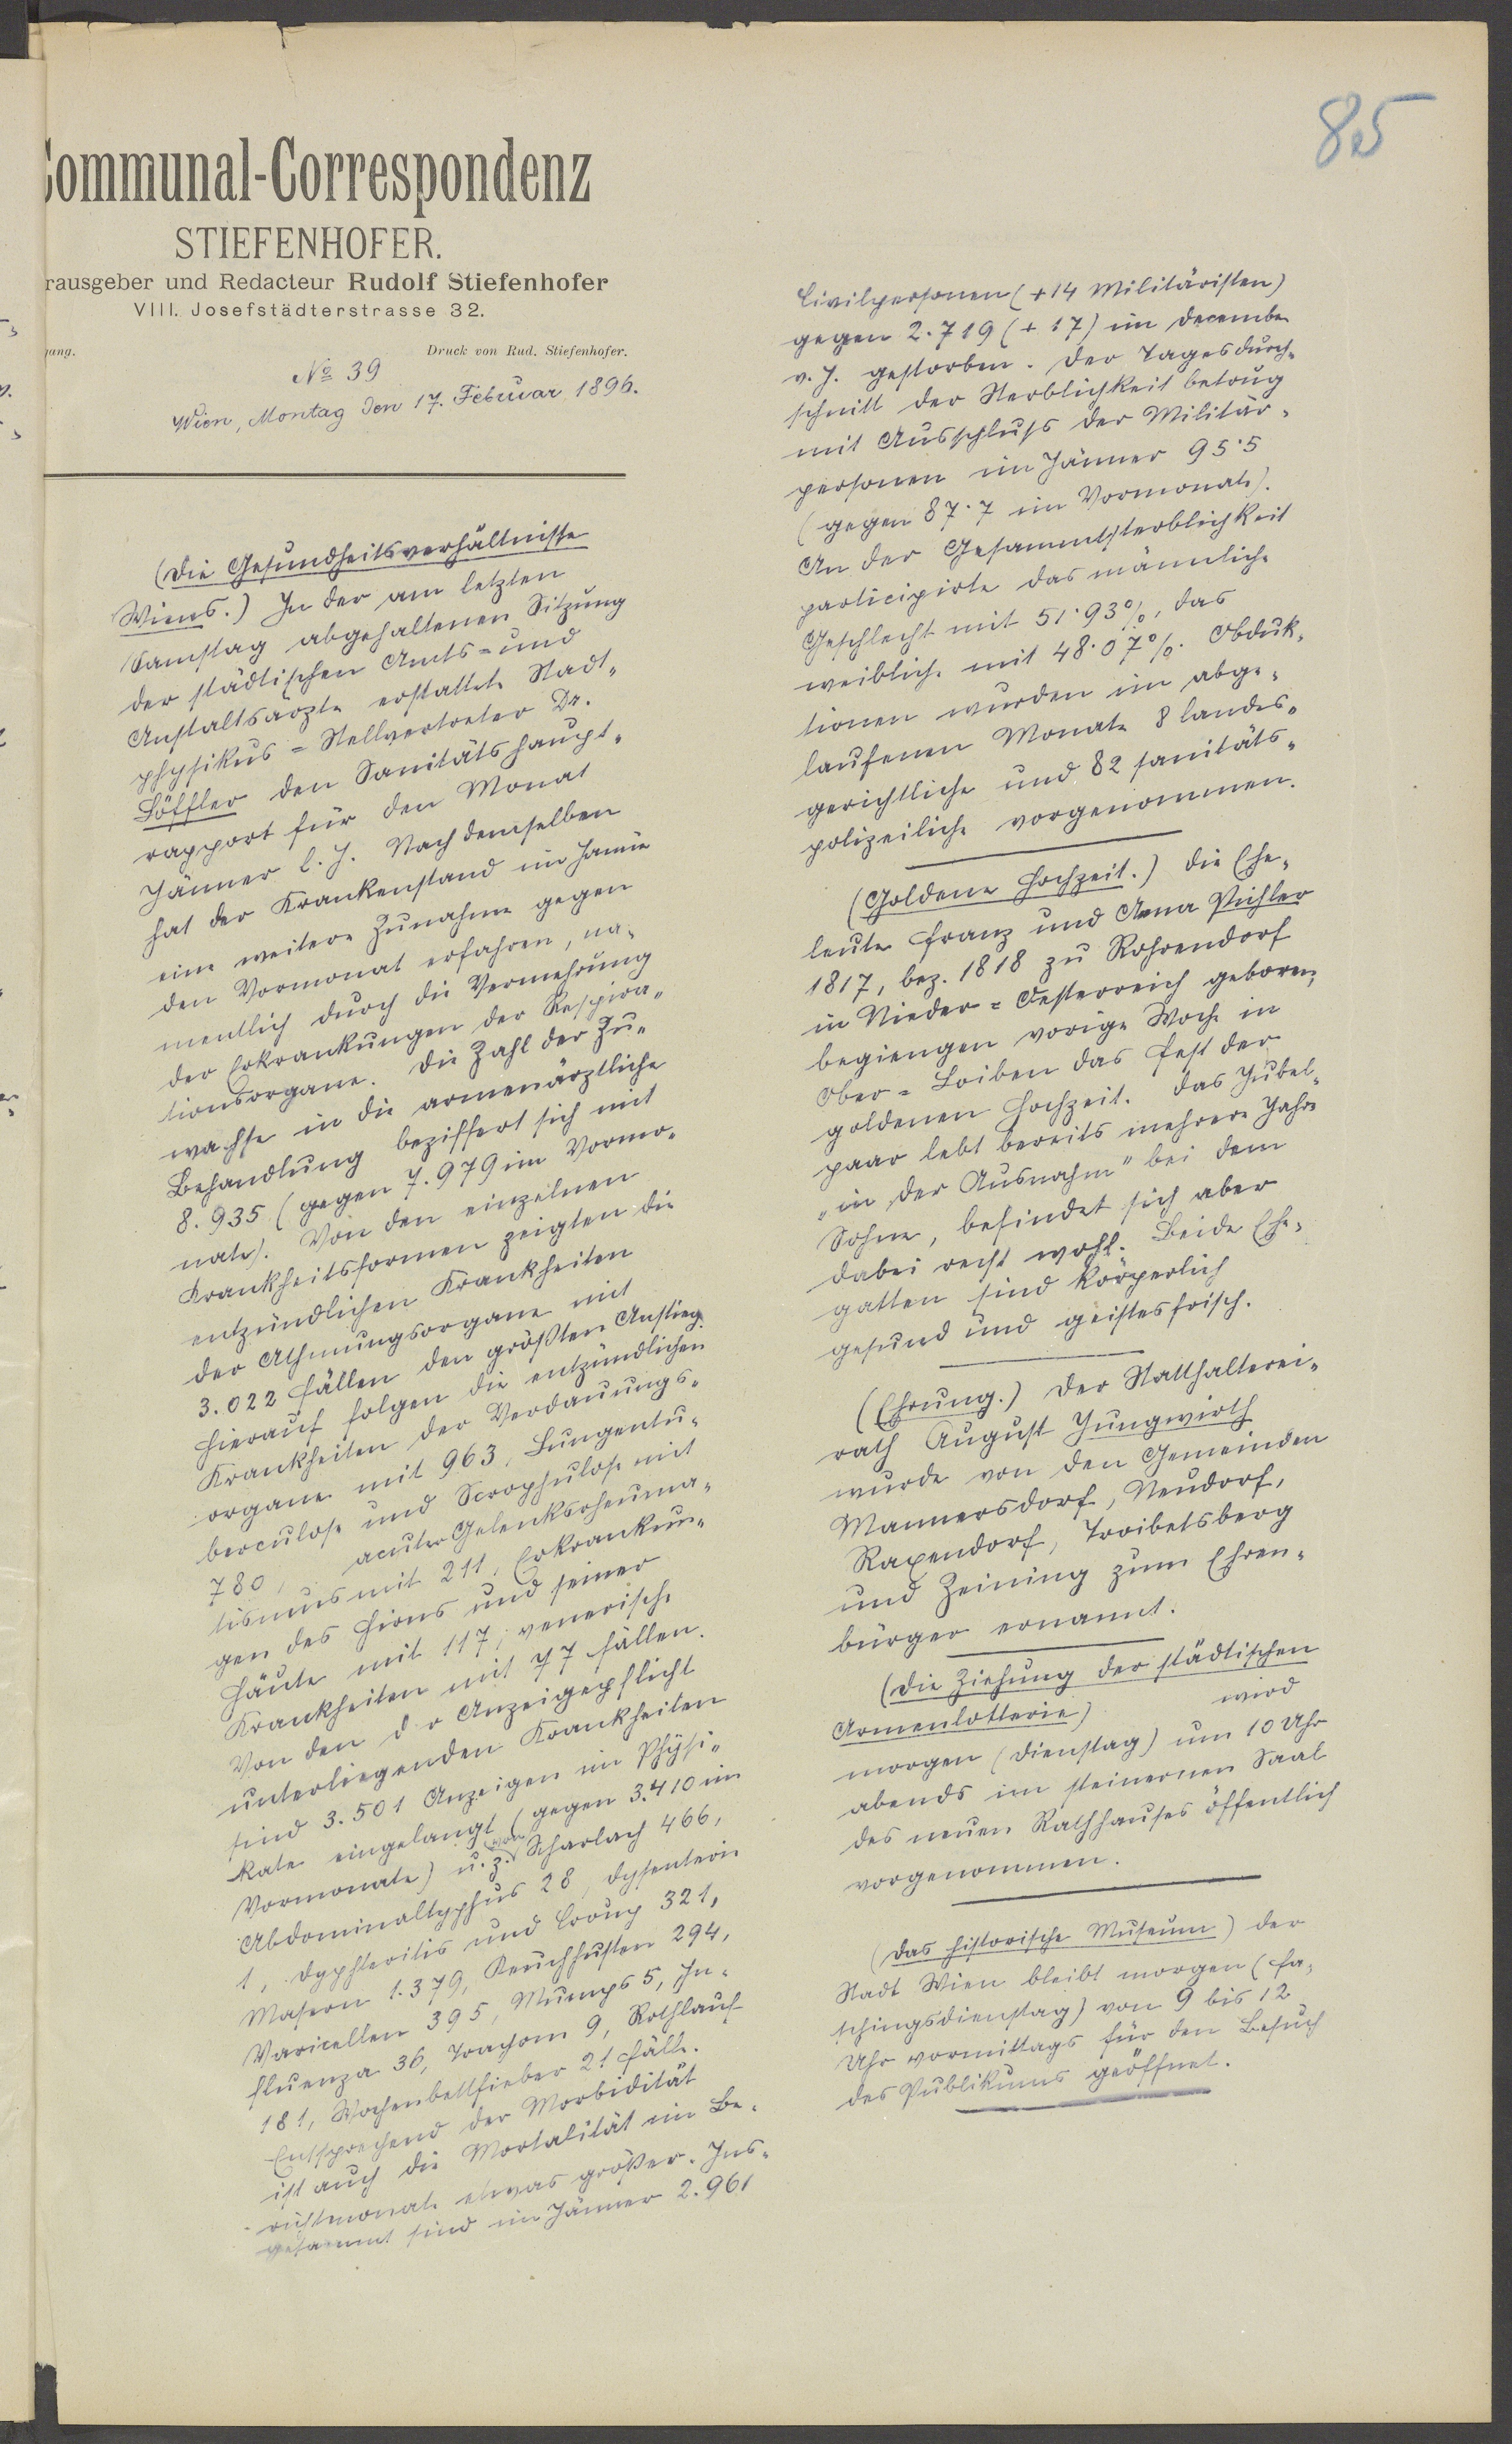 85
Communal-Correspondenz
STIEFENHOFER.
rausgeber und Redacteur Rudolf Stiefenhofer
VIII. Josefstädterstrasse 32.
gang.
Druck von Rud. Stiefenhofer.
No 39
Wien, Montag den 17. Februar 1896.
(Die Gesundheitsverhältnisse
Wiens.) In der am letzten
Samstag abgehaltenen Sitzung
der städtischen Amts- und
Anstaltsärzte erstattete Stadt-
physikus-Stellvertreter Dr.
Löffler den Sanitätshaupt-
rapport für den Monat
Jänner l. J. Nach demselben
hat der Krankenstand im Jänner
eine weitere Zunahme gegen
den Vormonat erfahren, na-
mentlich durch die Vermehrung
der Erkrankungen der Respira-
tionsorgane. Die Zahl der Zu-
wachse in die armenärztliche
Behandlung beziffert sich mit
8.935 (gegen 7.979 im Vormo-
nate). Von den einzelnen
Krankheitsformen zeigten die
entzündlichen Krankheiten
der Athmungsorgane mit
3.022 Fällen den größten Anstieg.
Hierauf folgen die entzündlichen
Krankheiten der Verdauungs-
organe mit 963, Lungentu-
berculose und Scrophulose mit
780, acuter Gelenksrheuma-
tismus mit 211, Erkrankun-
gen des Hirns und seiner
Häute mit 117, venerische
Krankheiten mit 77 Fällen.
Von den der Anzeigepflicht
unterliegenden Krankheiten
sind 3.501 Anzeigen im Physi-
kate eingelangt (gegen 3.410 im
Vormonate) u. z. von Scharlach 466,
Abdominaltyphus 28, Dysenterie
1, Dyphteritis und Croup 321,
Masern 1.379, Keuchhusten 294,
Varicellen 395, Mumps 5, In-
fluenza 36, Trachom 9, Rothlauf
181, Wochenbettfieber 21 Fälle.
Entsprechend der Morbidität
ist auch die Mortalität im Be-
richtmonate etwas größer. Ins-
gesammt sind im Jänner 2.961
Civilpersonen (+ 14 Militäristen)
gegen 2.719 (+ 17) im December
v. J. gestorben. Der Tagesdurch-
schnitt der Sterblichkeit betrug
mit Ausschluss der Militär-
personen im Jänner 95·5
(gegen 87·7 im Vormonate).
An der Gesammtsterblichkeit
participirte das männliche
Geschlecht mit 51·93%, das
weibliche mit 48·07%. Obduk-
tionen wurden im abge-
laufenen Monate 8 landes-
gerichtliche und 82 sanitäts-
polizeiliche vorgenommen.
(Goldene Hochzeit.) Die Ehe-
leute Franz und Anna Pichler
1817, bez. 1818 zu Rohrendorf
in Nieder-Oesterreich geboren,
begiengen vorige Woche in
Ober-Loiben das Fest der
goldenen Hochzeit. Das Jubel-
paar lebt bereits mehrere Jahre
"in der Ausnahm" bei dem
Sohne, befindet sich aber
dabei recht wohl. Beide Ehe-
gatten sind körperlich
gesund und geistesfrisch.
(Ehrung.) Der Statthalterei-
rath August Jungwirth
wurde von den Gemeinden
Mannersdorf, Neudorf,
Raxendorf, Troibetsberg
und Zeining zum Ehren-
bürger ernannt.
(Die Ziehung der städtischen
Armenlotterie) wird
morgen (Dienstag) um 10 Uhr
abends im steinernen Saal
des neuen Rathhauses öffentlich
vorgenommen.
(Das historische Museum) der
Stadt Wien bleibt morgen (Fa-
schingsdienstag) von 9 bis 12
Uhr vormittags für den Besuch
des Publikums geöffnet.